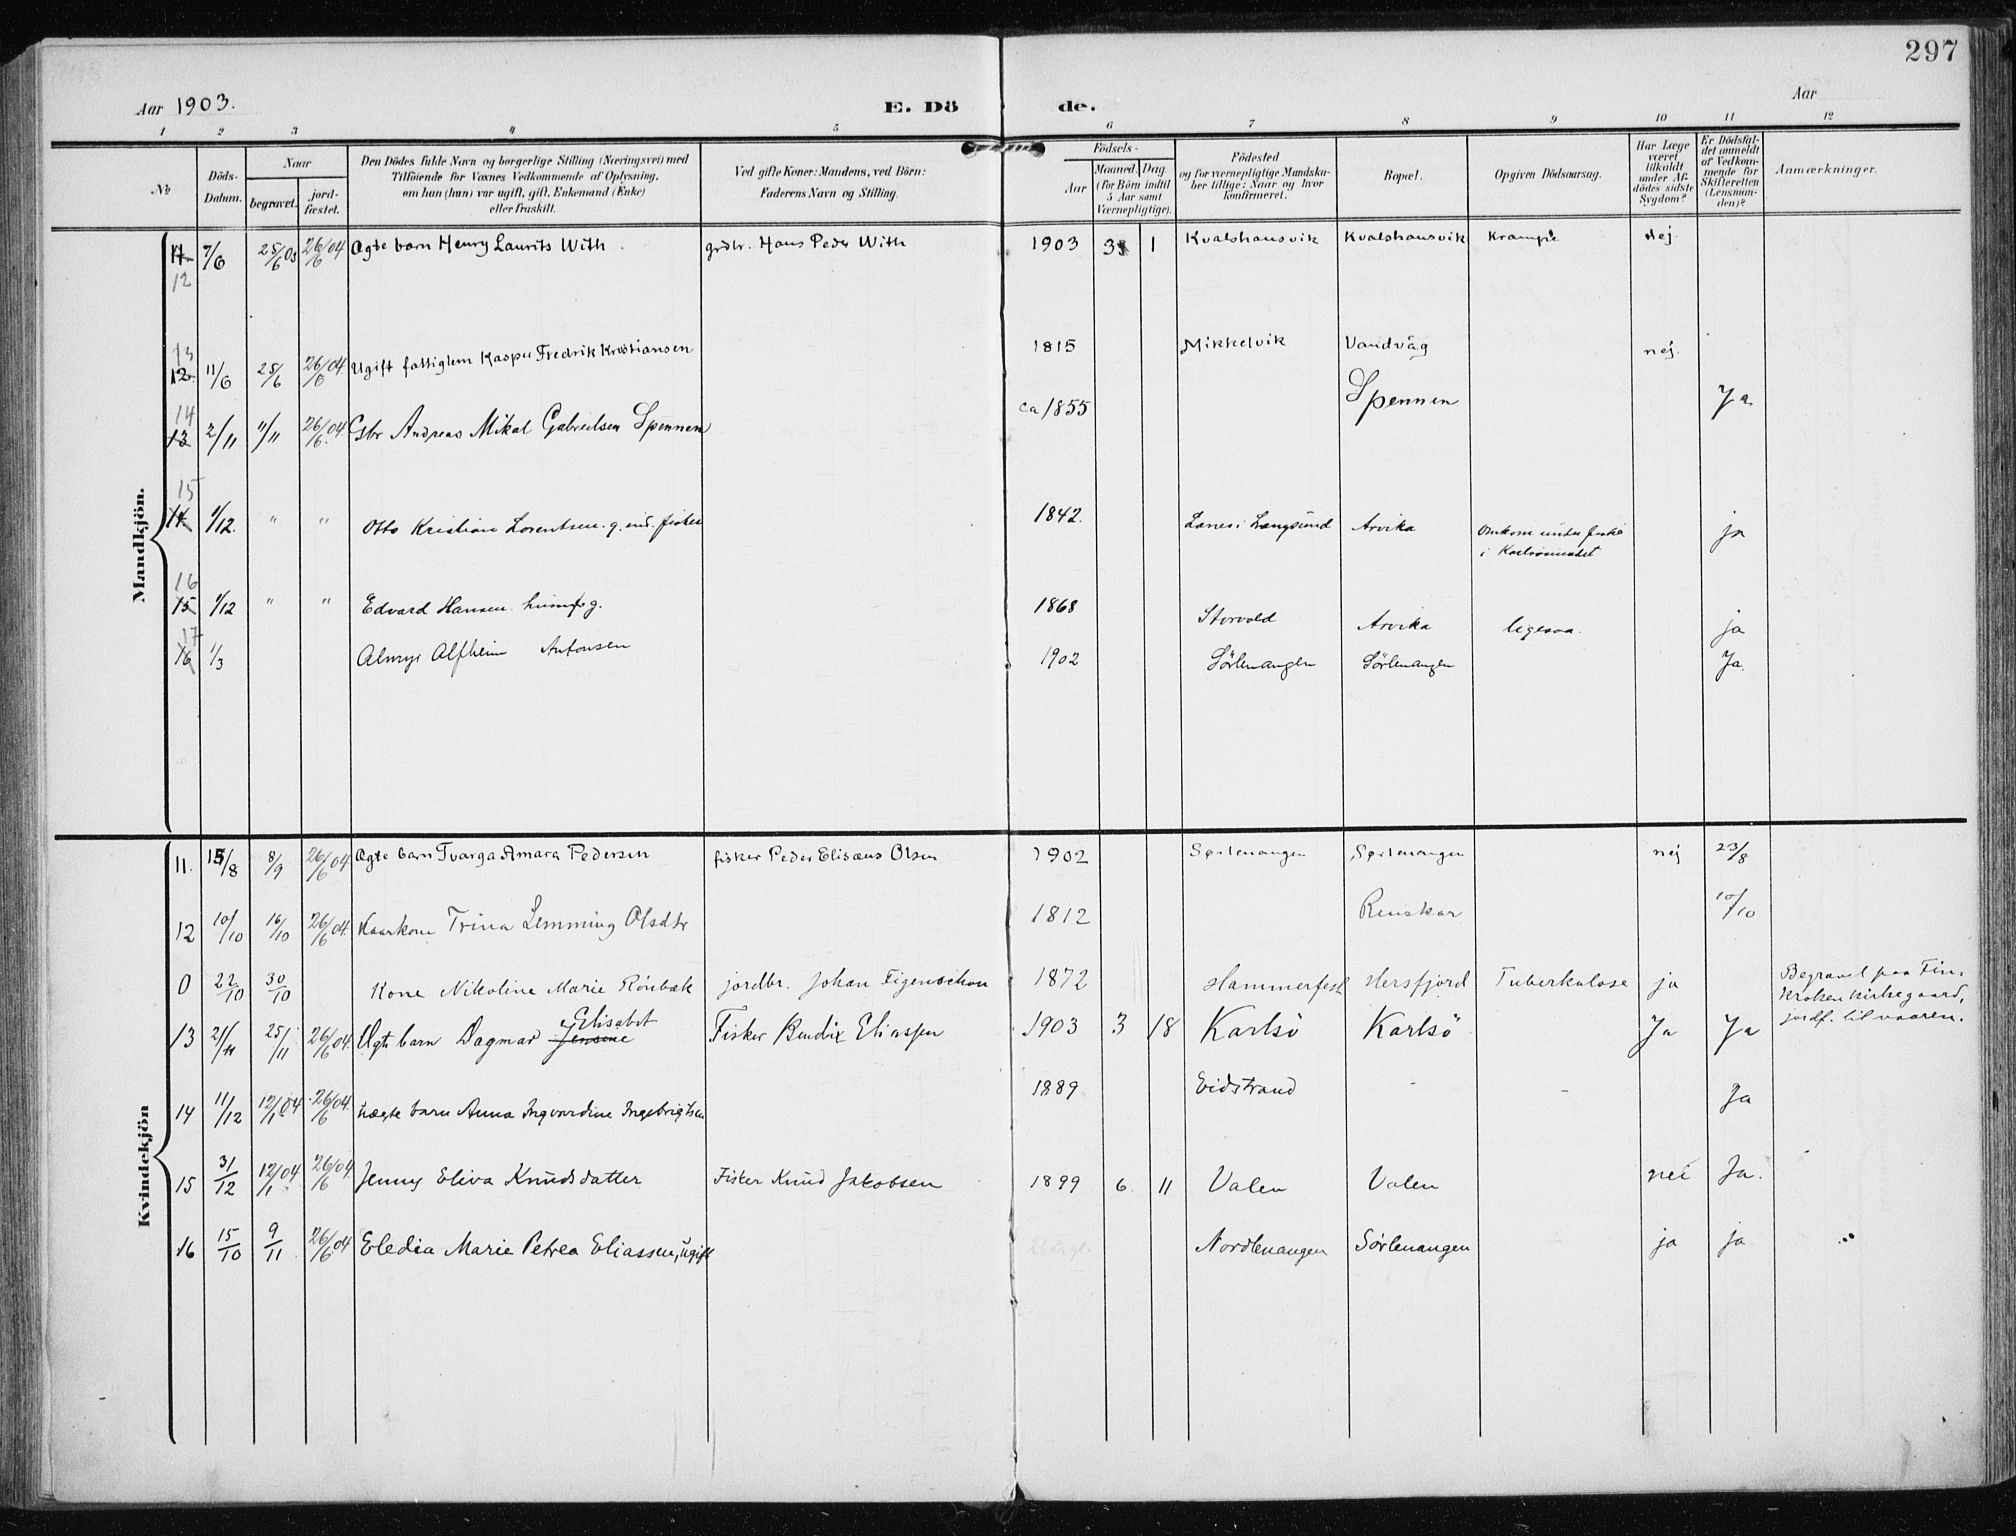 297
Aar 1903. E. Dö de. Aar
1 2 3 4 5 6 7 8 9 10 11 12
No
Döds-Datum.
Naar
begravet.
jord-fæstet.
Den Dödes fulde Navn og borgerlige Stilling (Næringsvei) med
Tilföiende for Voxnes Vedkommende af Oplysning,
om han (hun) var ugift, gift, Enkemand (Enke)
eller fraskilt.
Ved gifte Koner: Mandens, ved Börn:
Faderens Navn og Stilling.
Födsels-
Aar
Maaned. Dag
(for Börn indtil
5 Aar samt
Værnepligtige).
Födested
og for værnepligtige Mandska-
ber tillige: Naar og hvor
konfirmeret.
Bopæl.
Opgiven Dödsaarsag.
Har Læge
været
tilkaldt
under Af-
dödes sidste
Sygdom?
Er Dödsfal-
det anmeldt
af Vedkom-
mende for
Skifteretten
(Lensman-
den)?
Anmærkninger.
Mandkjön.
11 7/6 25/6 03 26/6 04 Ægte barn Henry Laurits With. grdbr. Hans Peder With 1903 3 1 Kvalshausvik Kvalshausvik Krampe Nej.
12
13
12. 11/6 25/6 26/6 04. Ugift fattiglem Kasper Fredrik Kristiansen 1815 Mikkelvik Vandvåg nej.
14
13 2/11 11/11 26/6 04. Gbr Andreas Mikal Gabrielsen Spennen ca 1855 Spennen Ja
15
14 1/12. " " Otto Kristian Lorentsen. g. fisker 1842. Lanes i Langsund Arvika Omkom under fiske
i Karlsøsundet ja
16
15 1/12 " " Edvard Hansen g. 1868 Storvold Arvika ligesaa. ja
17
16 1/3 Alfheim Antonsen 1902 Sörlenangen Sörlenangen Ja.
Kvindekjön
11. 15/8 8/9 26/6 04 Ægte barn Tvarga Amara Pedersen fisker Peder Elisæus Olsen 1902 Sørlenangen Sørlenangen nej 23/8
12 10/10 16/10 26/6 04. Kaarkone Trina Lemming Olsdtr 1812 Renskar 10/10
0 22/10 30/10 Kone Nikoline Marie Rönbæk jordbr. Johan Figenschou 1872 Hammerfest Hersfjord Tuberkulose ja Begravet paa Fin-
kroken Kirkegaard,
jordf. til vaaren.
Elisabet
13 21/11 25/11 26/6 04. Ægte barn Dagmar Jensine Fisker Bendix Eliassen 1903 3 18 Karlsö Karlsö Ja Ja
14 11/12 12/1 04 26/6 04. uægte barn Anna Ingvardine Ingebrigtsen 1889 Eidstrand - - Ja
15 31/12 12/1 04 26/6 04. Jenny Eliva Knudsdatter Fisker Knud Jakobsen 1899 6. 11 Valen Valen nei Ja.
16 15/10 9/11 26/6 04 Eledia Marie Petrea Eliassen, ugift Nordlenangen Sörlenangen ja ja